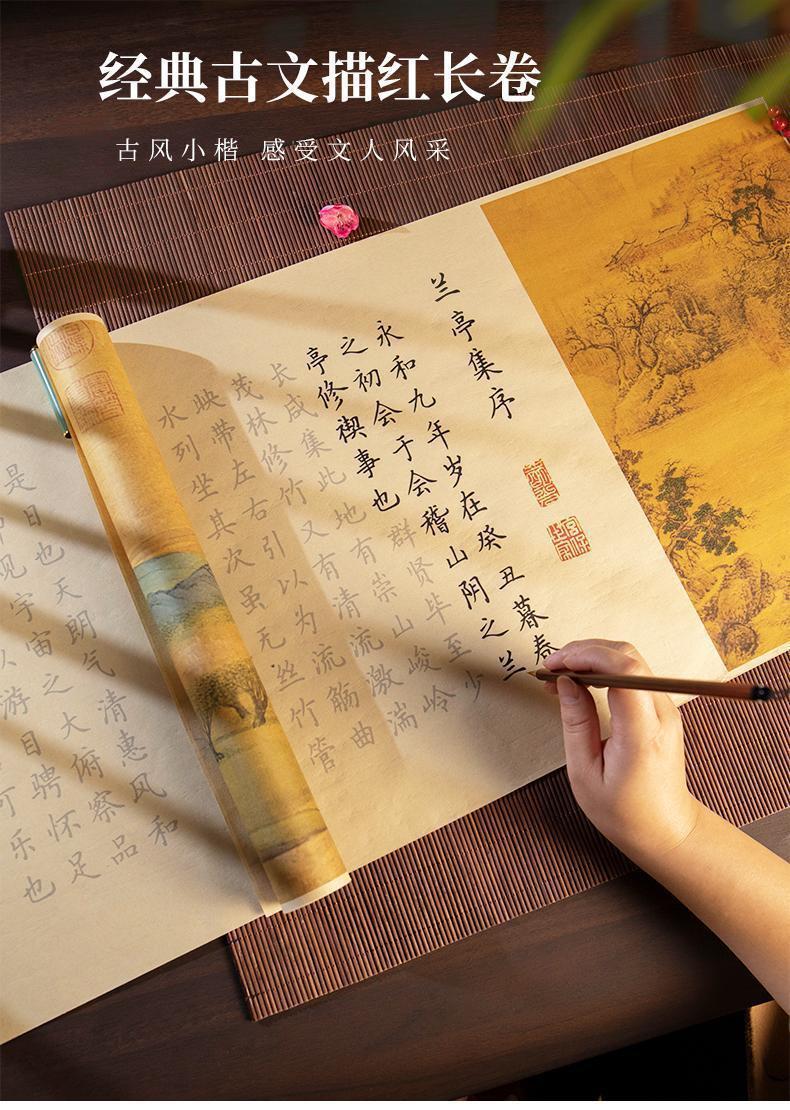 经典古文描红长卷
古风小楷 感受文人风采
兰亭集序
永和九年岁在癸丑暮春
之初会于会稽山阴之兰
亭修禊事也群贤毕至少
长咸集此地有崇山峻岭
茂林修竹又有清流激湍
映带左右引以为流觞曲
水列坐其次虽无丝竹管
是日也天朗气清惠风和
宇宙之大俯察品
游目骋怀足
可乐也